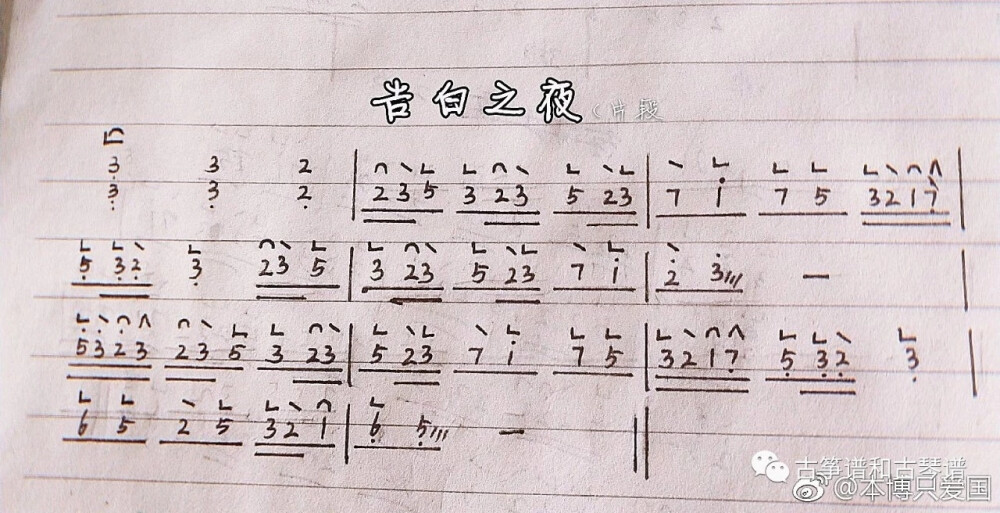 告白之夜(片段
3 3 2 | 2 3 5 3 2 3 5 2 3 | 7 i 7 5 3 2 1 7 |
3 3 2
5 3 2 3 2 3 5 | 3 2 3 5 2 3 7 i | 2 3/// — |
5 3 2 3 2 3 5 3 2 3 | 5 2 3 7 i 7 5 | 3 2 1 7 5 3 2 3 |
6 5 2 5 3 2 1 | 6 5/// — ||
古筝谱和古琴谱
@本博只爱国